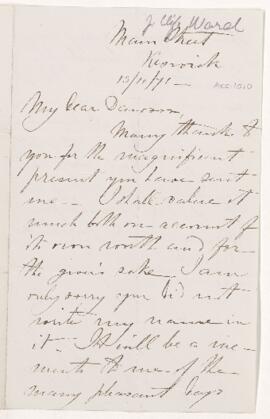 J Clif Ward
Main Street
Keswick
13/11/71 -
ACC 1010
My dear Dawson,
Many thanks to
you for the magnificent
present you have sent
me - I shall value it
much both on account of
its own worth and for
the giver's sake. I am
only sorry you did not
write my name in
it - It will be a me-
mento to me of the
many pleasant days